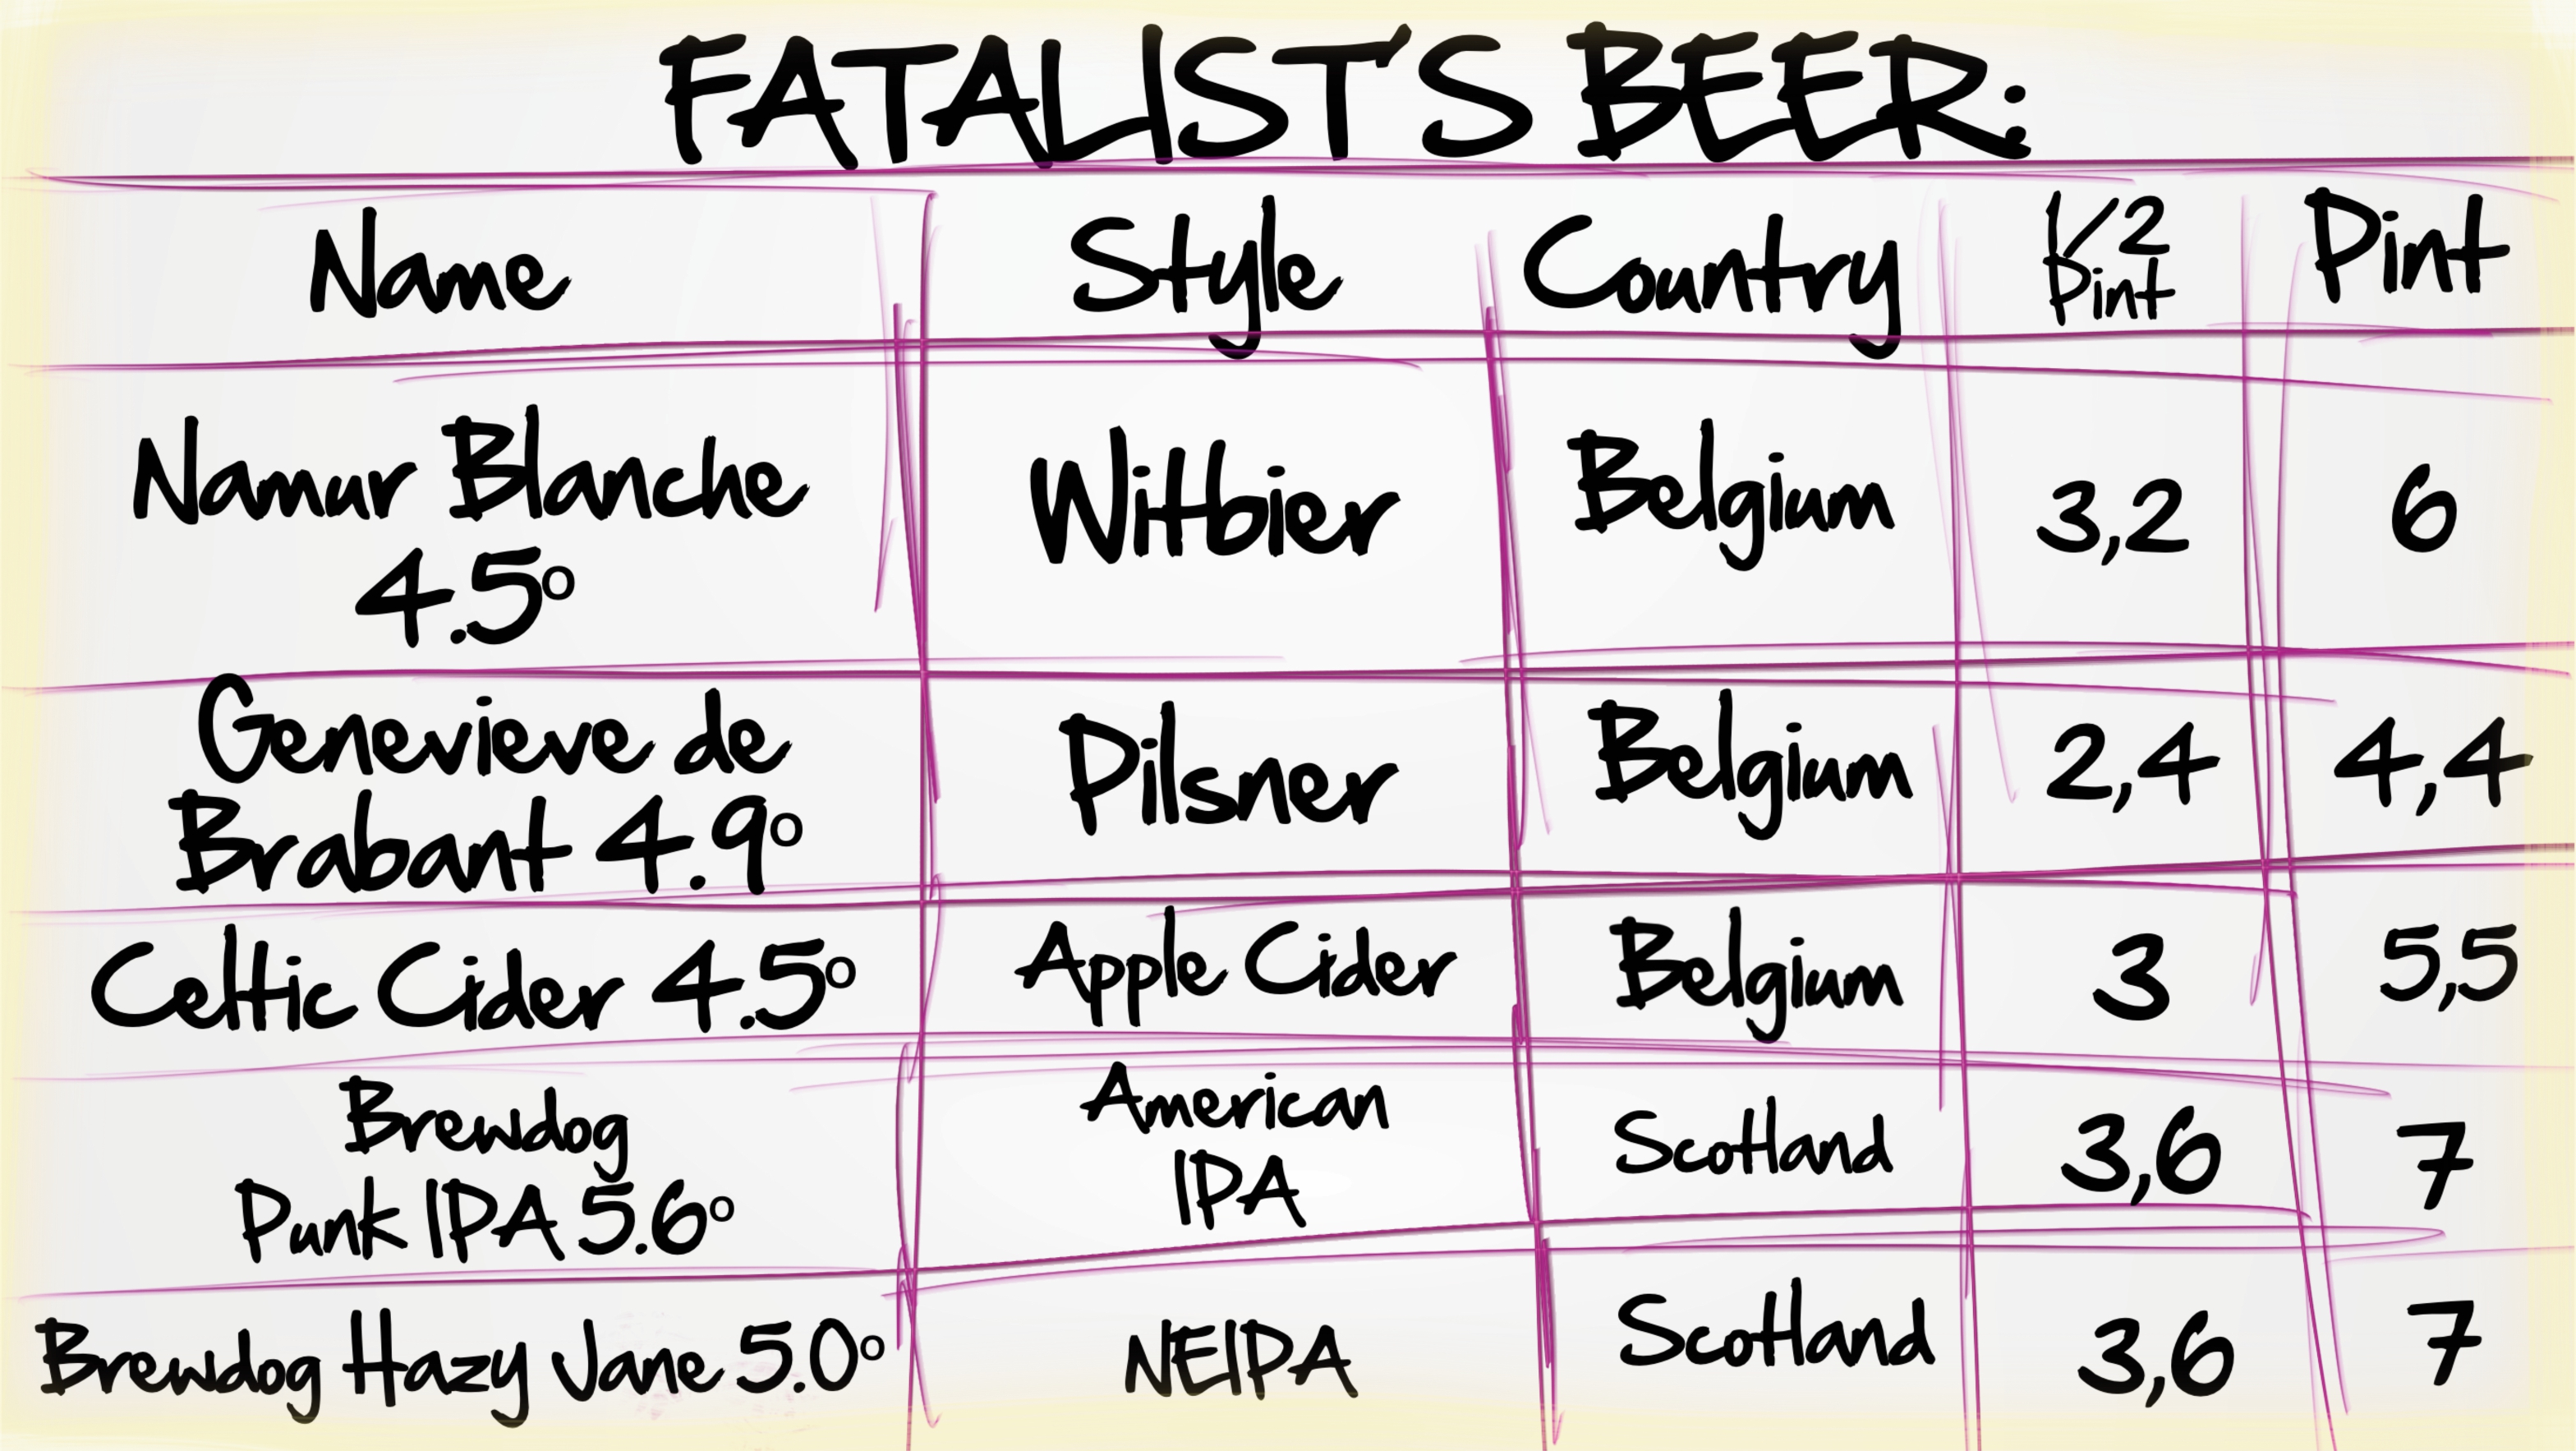 FATALIST'S BEER:
Name Style Country 1/2 Pint Pint
Namur Blanche
4.5° Witbier Belgium 3,2 6
Genevieve de
Brabant 4.9° Pilsner Belgium 2,4 4,4
Celtic Cider 4.5° Apple Cider Belgium 3 5,5
Brewdog
Punk IPA 5.6° American
IPA Scotland 3,6 7
Brewdog Hazy Jane 5.0° NEIPA Scotland 3,6 7